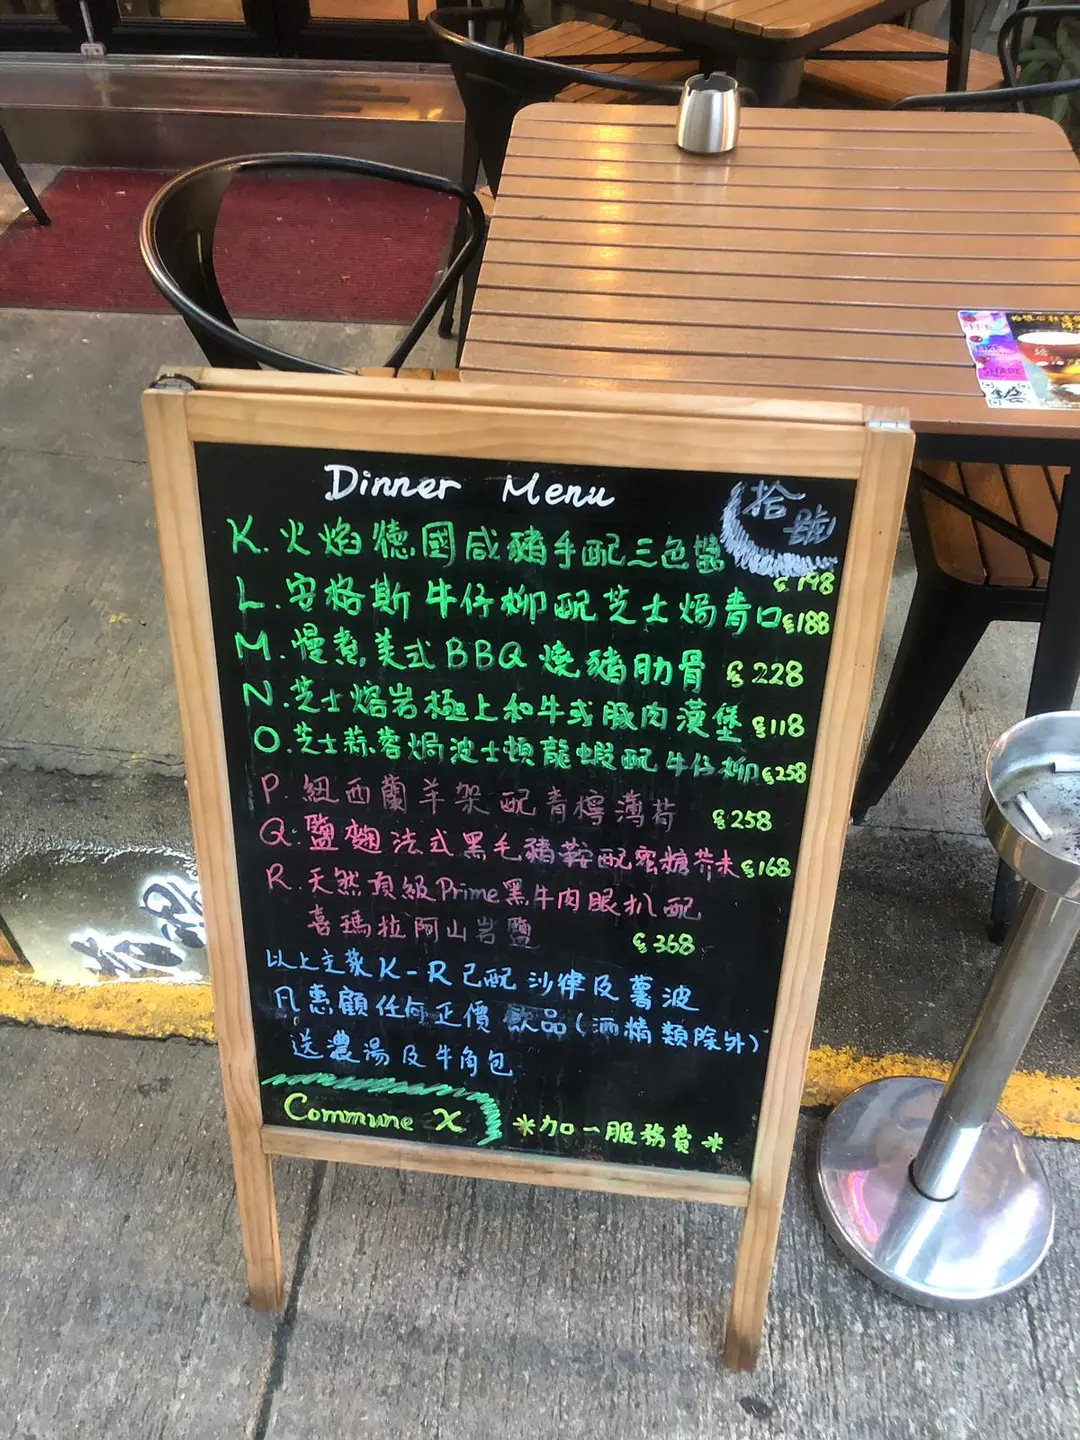 Dinner Menu
拾號
K. 火焰德國咸豬手配三色醬 $198
L. 安格斯牛仔柳配芝士焗青口 $188
M. 慢煮美式BBQ燒豬肋骨 $228
N. 芝士熔岩極上和牛或豚肉漢堡 $118
O. 芝士蒜蓉焗波士頓龍蝦配牛仔柳 $258
P. 紐西蘭羊架配青檸薄荷 $258
Q. 鹽麴法式黑毛豬鞍配蜜糖芥末 $168
R. 天然頂級Prime黑牛肉眼扒配
喜瑪拉阿山岩鹽 $368
以上主菜K-R已配沙律及薯波
凡惠顧任何正價飲品(酒精類除外)
送濃湯及牛角包
Commune X *加一服務費*
SHARE